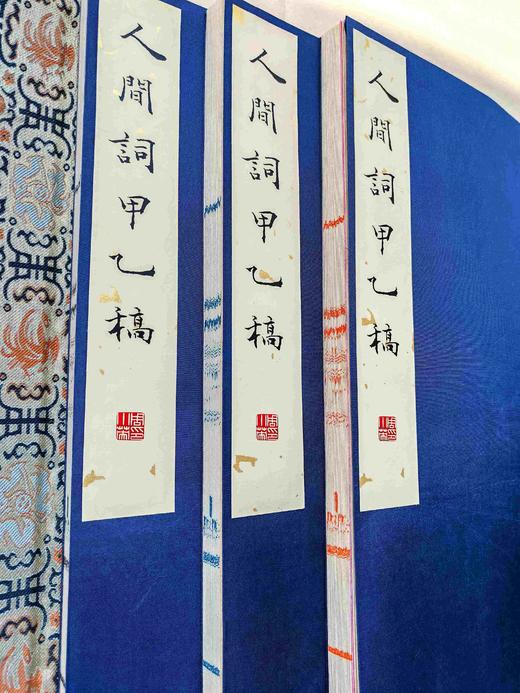 人間詞甲乙稿
人間詞甲乙稿
人間詞甲乙稿